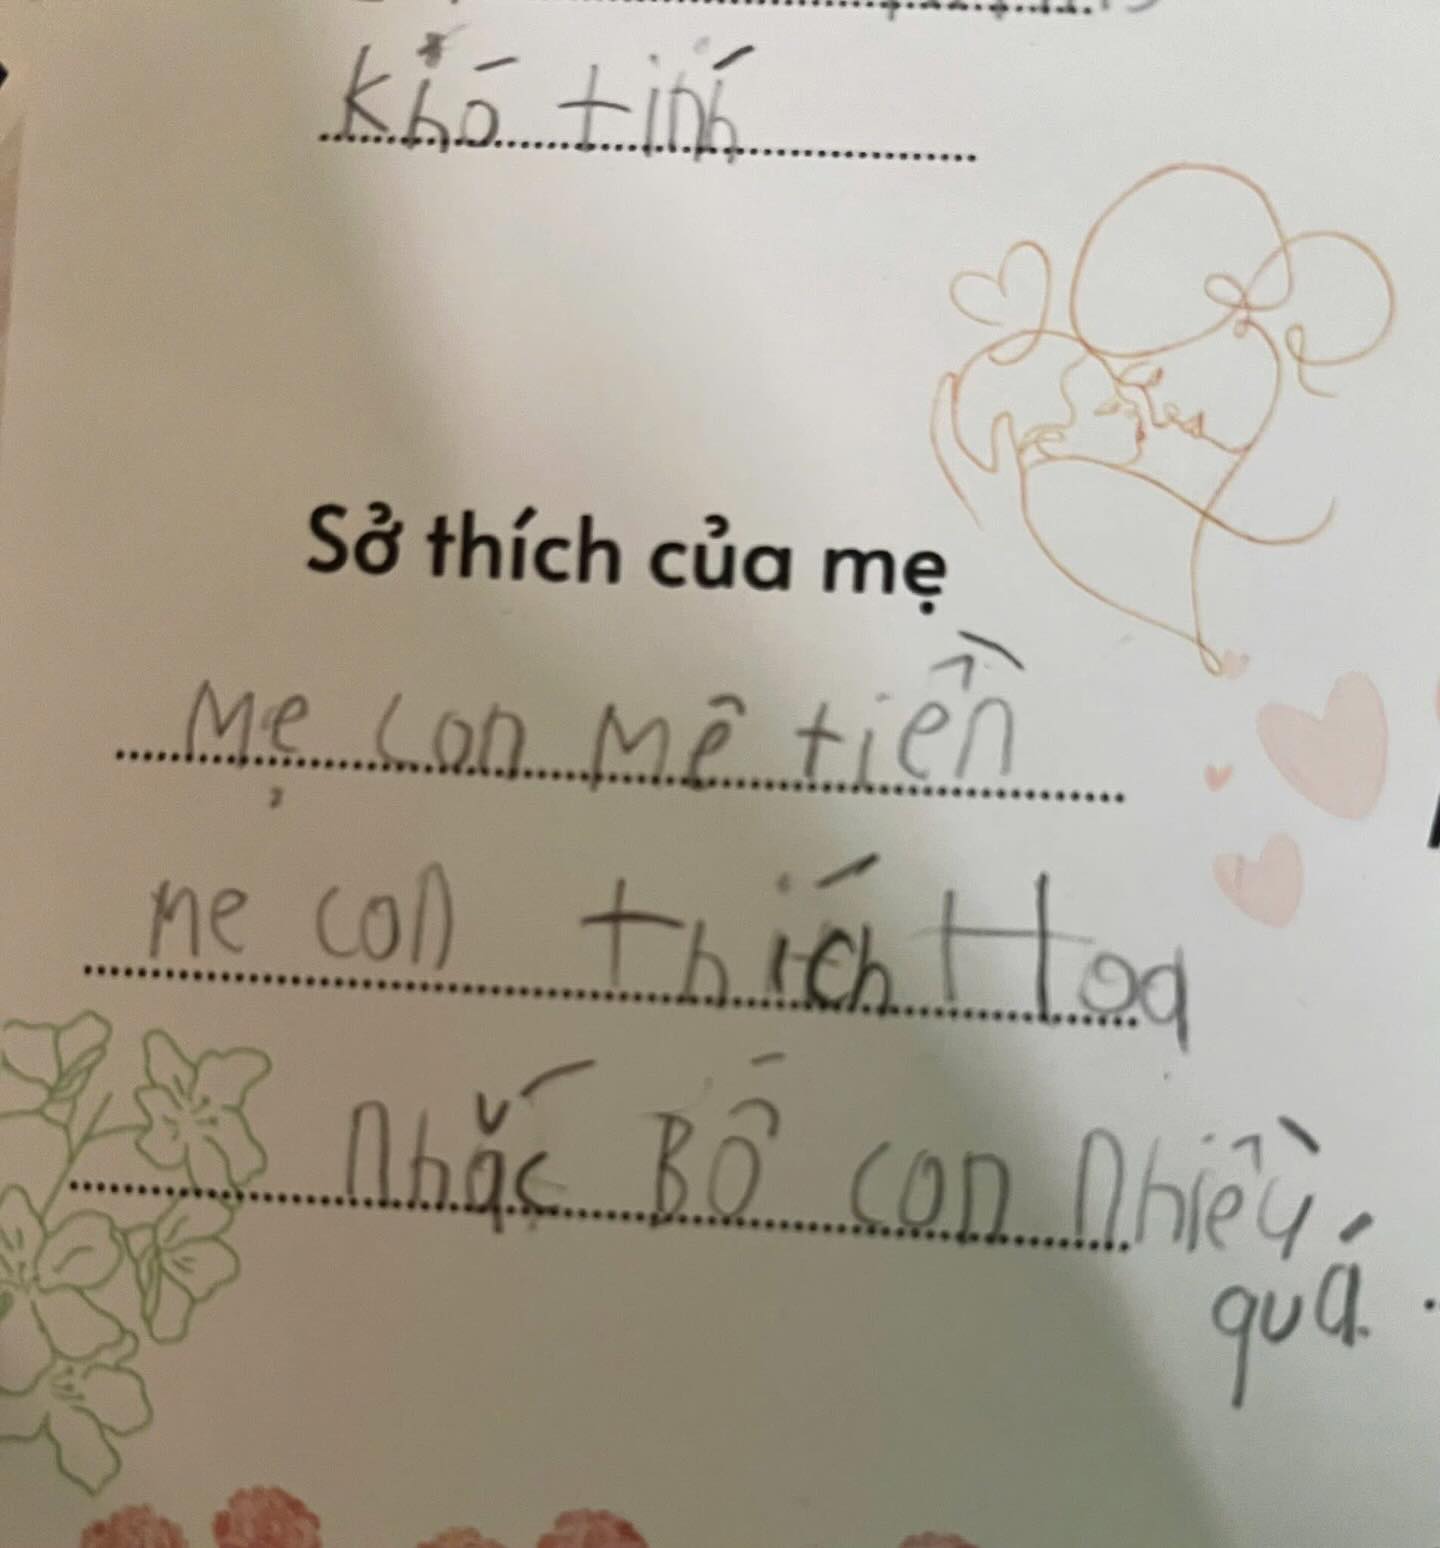 khó tính
Sở thích của mẹ
Mẹ con Mê tiền
Me con thích Hoa
Nhắc Bố con Nhiều
quá.